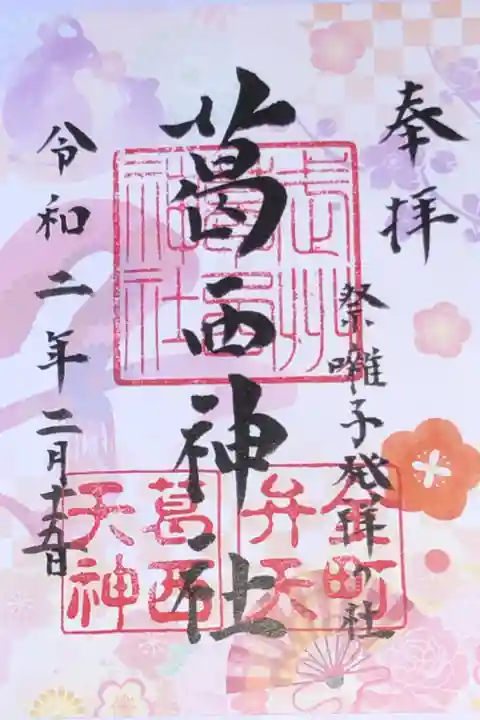 奉拝
祭囃子発祥の社
葛西神社
令和二年二月十五日
武州葛西神社
金町弁天
葛西天神